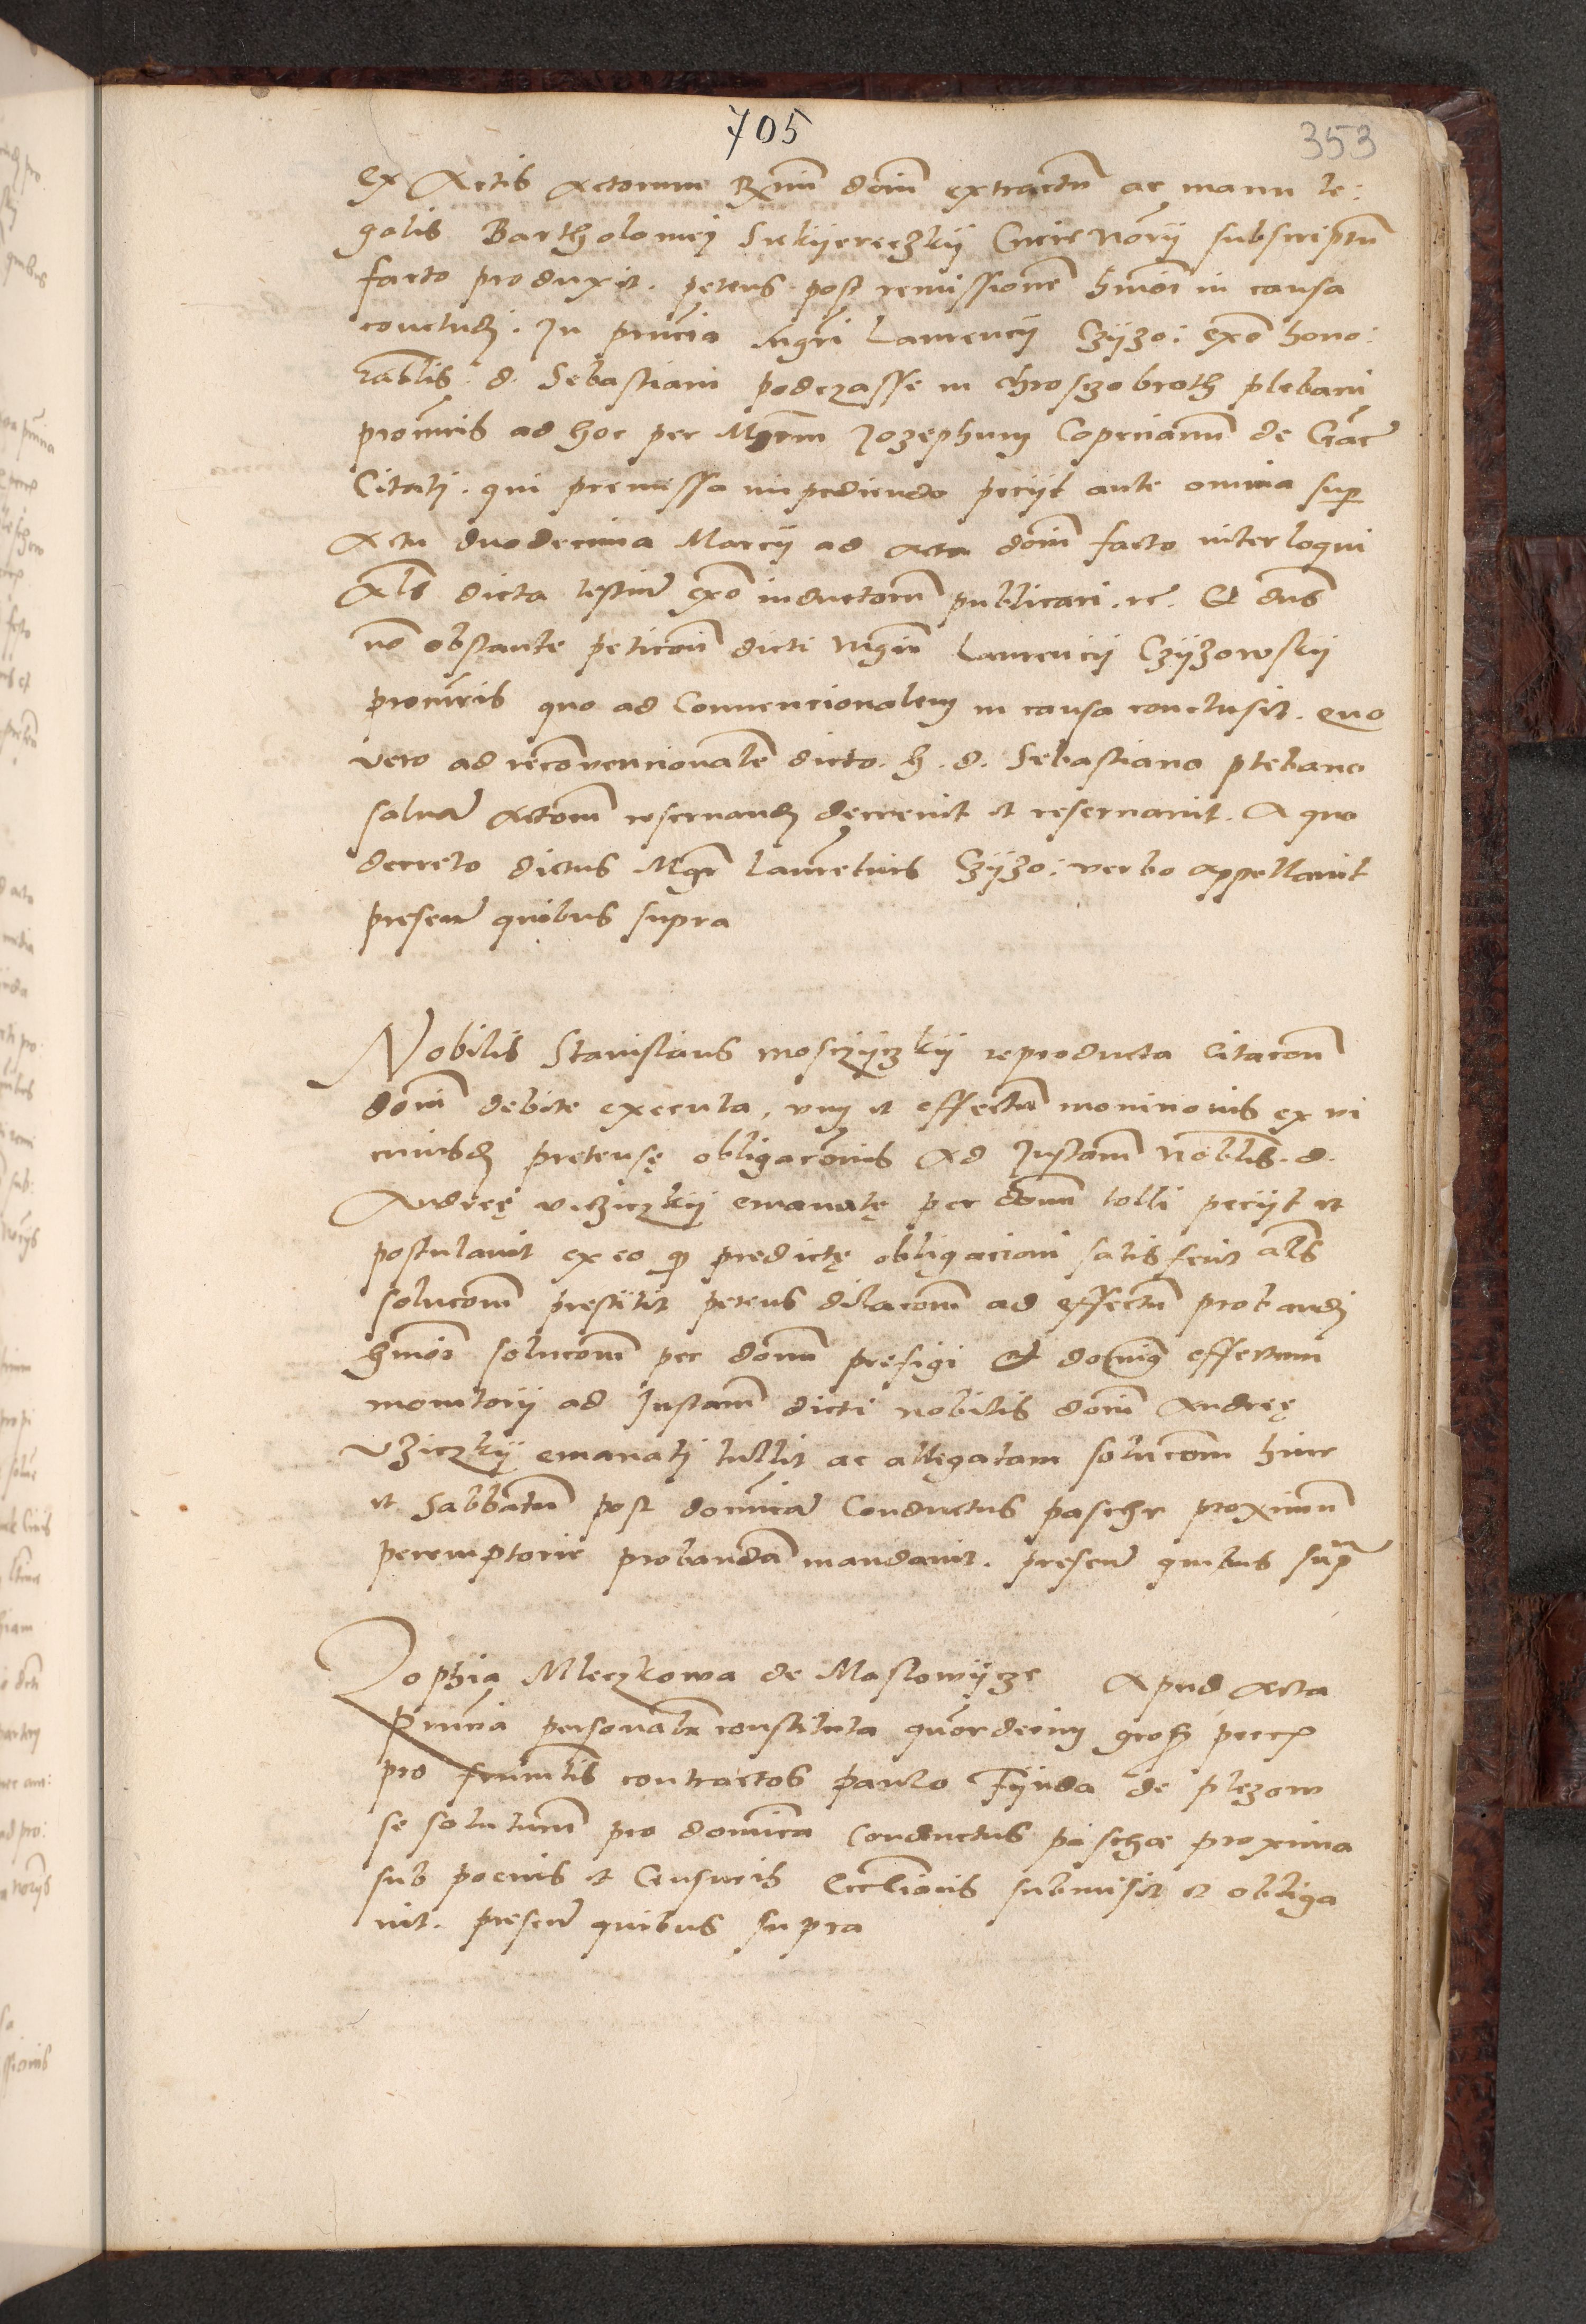 705
353
Ex Actis Actorum Rmi dni extractu ac manu le:
galis Bartholomej Siekyereczkij Curie Norij subscriptu
facto produxit. petens post remissione hmoi in causa
concludj. In pncia Mgri Laurencij Czyzo: exo hono:
rablis. d. Sebastiani podczasse in Chroszobroth plebani
procuris ad hoc per Mgrm Jozephum Coprinianu de Grac
Citatj. qui premissa impediendo peciit ante omnia sup
Actu duodecima Marcij ad acta dom facto interloqui
Als dicta testiu exo inductoru publicari. rc. Et dns
no obstante peticoni dicti Mgri Laurencij Czyzowskij
procuris quo ad Convencionalem in causa conclusit. Quo
vero ad reconvencionale dicto. h. d. Sebastiano plebano
salva Actom reservandu decrevit et reservavit. A quo
decreto dictus Mgr Laurentius Czyzo: verbo appellavit
presen quibus supra
Nobilis Stanislaus Mosczyczkij reproducta Citacom
dom debite executa, vim et effectum monicionis ex vi
cuiusd pretense obligaconis Ad Instam Noblis. d.
Andree Uziczkij emanate per dnum tolli peciit et
postulavit ex eo quod predicte obligacioni satisfecit als
solucom prestitit petens dilacom ad effectu probandj
hmoi solucom per dnum prefigi Et dominus effectum
monitorij ad Instam dicti nobilis dom Andree
Uziczkij emanatj tullit ac allegatam solucom hinc
et Sabbatum post domica Conductus pasche proximu
peremptorie probanda mandavit. presen quibus supra
Zophia Mleczkowa de Maslowycze Apud Acta
Pncia personalr constituta quordecim gros pecc
pro frumentis contractos paulo Fynda de plezow
se soluturam pro domica Conductus pascha proxima
sub poenis et Censuris Ecclionis submisit et obliga
vit. presen quibus supra